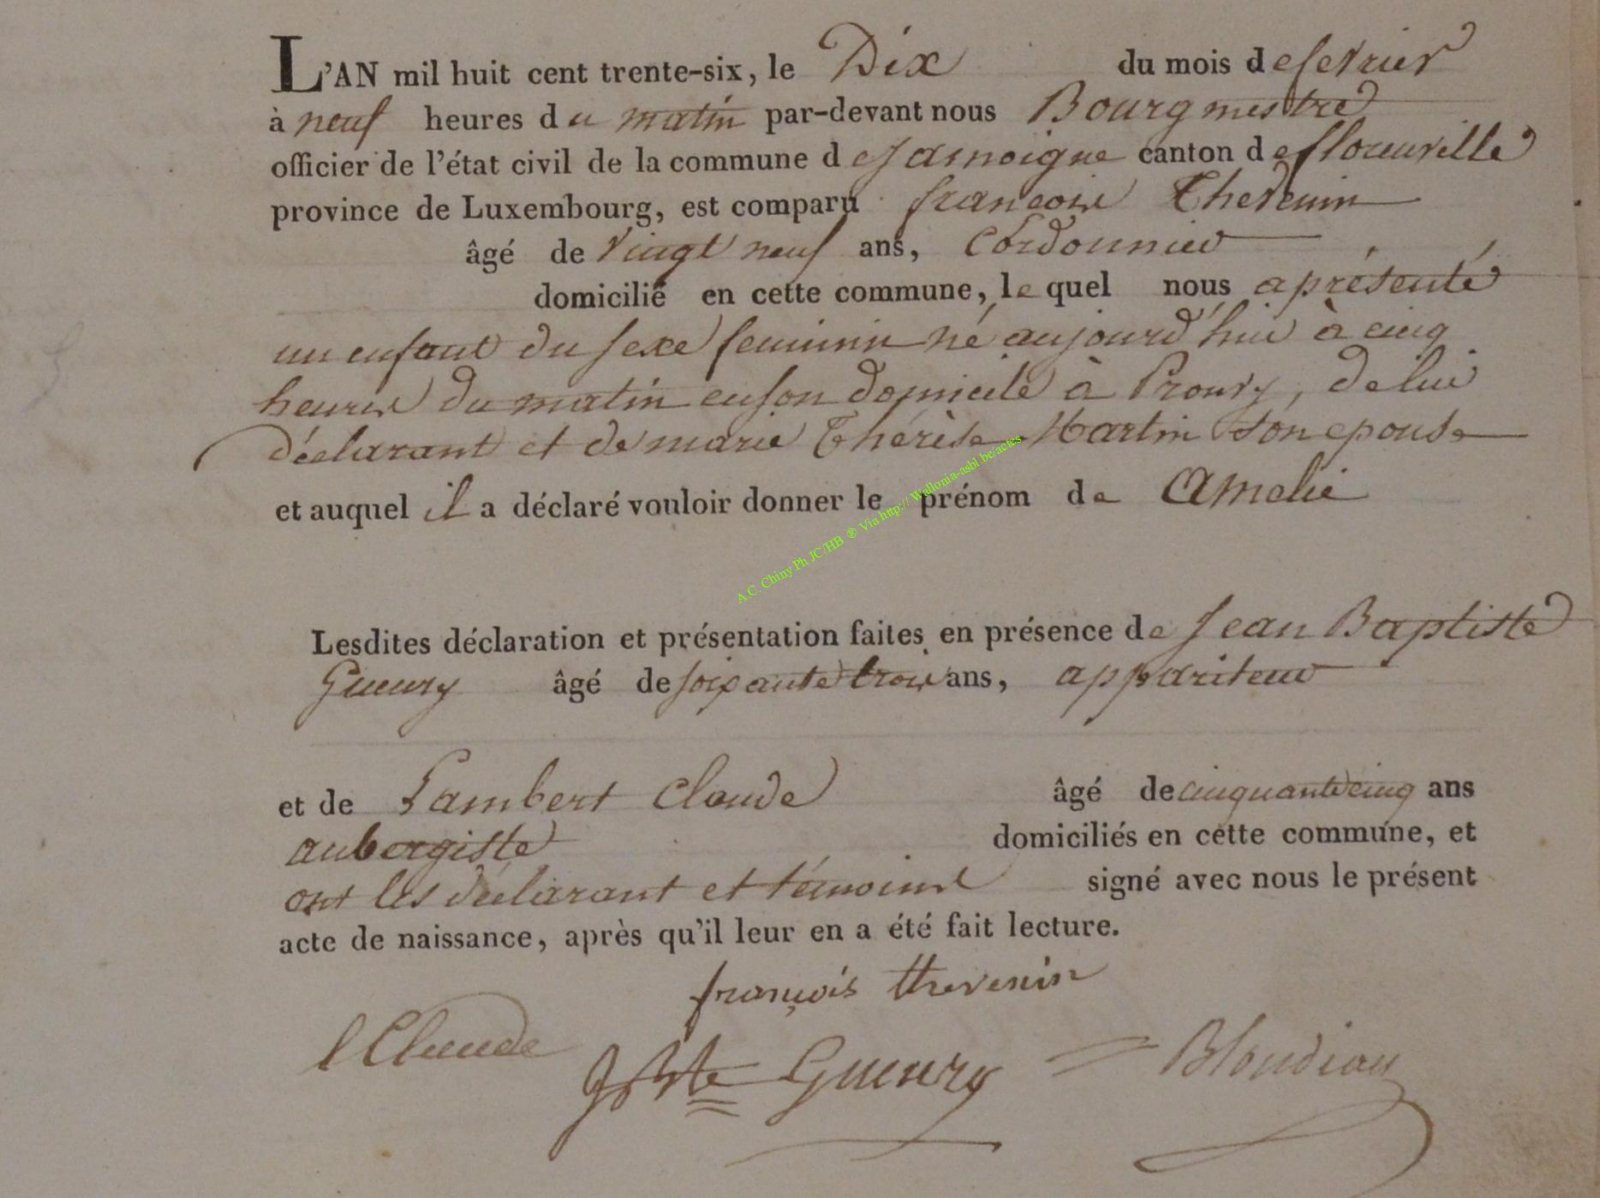 L'AN mil huit cent trente-six, le Dix du mois de fevrier
à neuf heures du matin par-devant nous Bourgmestre
officier de l'état civil de la commune de Jamoigne canton de florenville
province de Luxembourg, est comparu francois Thevenin
âgé de vingt neuf ans, Cordonnier
domicilié en cette commune, le quel nous a présenté
un enfant du sexe feminin né aujourd'hui à cinq
heures du matin en son domicile à Prouvy, de lui
déclarant et de marie Thérèse Martin son epouse
et auquel il a déclaré vouloir donner le prénom de Amelie
A.C. Chiny Ph JC/HB ® Via http:// Wallonia-asbl.be/actes
Lesdites déclaration et présentation faites en présence de Jean Baptiste
Gueury âgé de soixante trois ans, appariteur
et de Lambert Claude âgé de cinquante cinq ans
aubergiste domiciliés en cette commune, et
ont les déclarant et témoins signé avec nous le présent
acte de naissance, après qu'il leur en a été fait lecture.
françois thevenin
l Claude JBte Gueury Blondiau